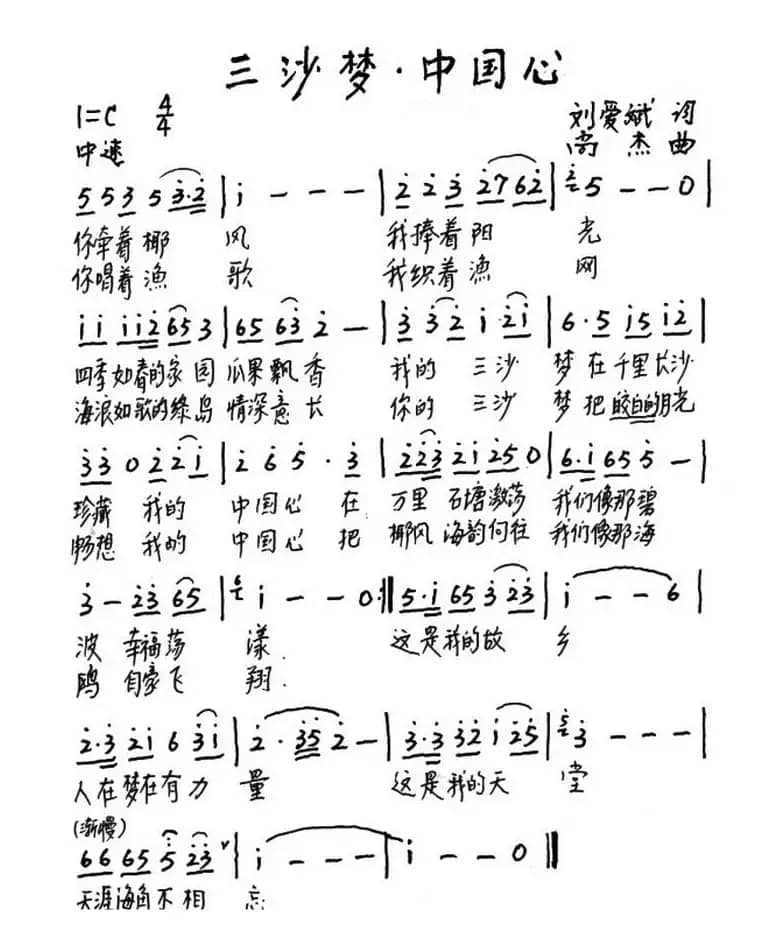 三沙梦·中国心
1=C 4/4 刘爱斌 词
中速 尚杰 曲
5 5 3 5 3·2 | i - - - | 2 2 3 2 7 6 2 | 5 - - 0 |
你牵着椰 风 我捧着阳 光
你唱着渔 歌 我织着渔 网
i i i i 2 6 5 3 | 6 5 6 3 2 - | 3 3 2 i 2 i | 6·5 i 5 i 2 |
四季如春的家园 瓜果飘香 我的 三沙 梦在千里长沙
海浪如歌的绿岛 情深意长 你的 三沙 梦把皎白的月光
3 3 0 2 2 i | 2 6 5 · 3 | 2 2 3 2 i 2 5 0 | 6·i 6 5 5 - |
珍藏 我的 中国心 在 万里 石塘激荡 我们像那碧
畅想 我的 中国心 把 椰风 海韵向往 我们像那海
3 - 2 3 6 5 | 6 i - - 0 :|| 5·i 6 5 3 2 3 | i - - 6 |
波 幸福荡 漾 这是我的故 乡
鸥 自豪飞 翔
2·3 2 i 6 3 i | 2 · 3 5 2 - | 3·3 3 2 i 2 5 | 3 - - |
人在梦在有力 量 这是我的天 堂
(渐慢)
6 6 6 5 5 2 3 | i - - - | i - - 0 ||
天涯海角不相 忘